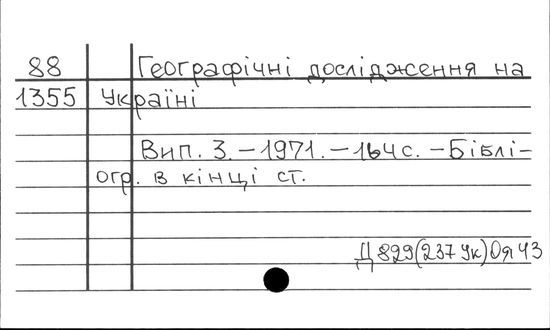 88 Географічні дослідження на
1355 Україні
Вип. 3. – 1971. – 164 с. – Біблі-
огр. в кінці ст.
Д 829(237Ук)0я43